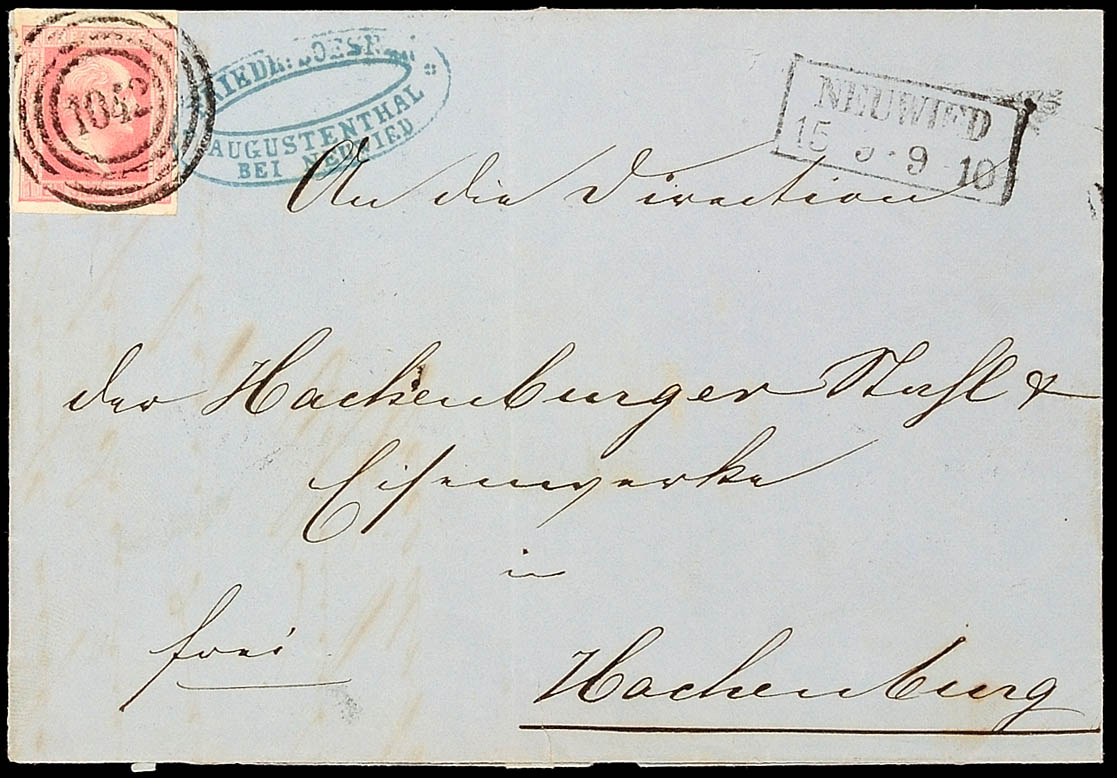 1042
AUGUSTENTHAL
BEI NEUWIED
NEUWIED
15 9-10
An die Direction
der Hachenburger Stahl &
Eisenwerke
in
frei
Hachenburg